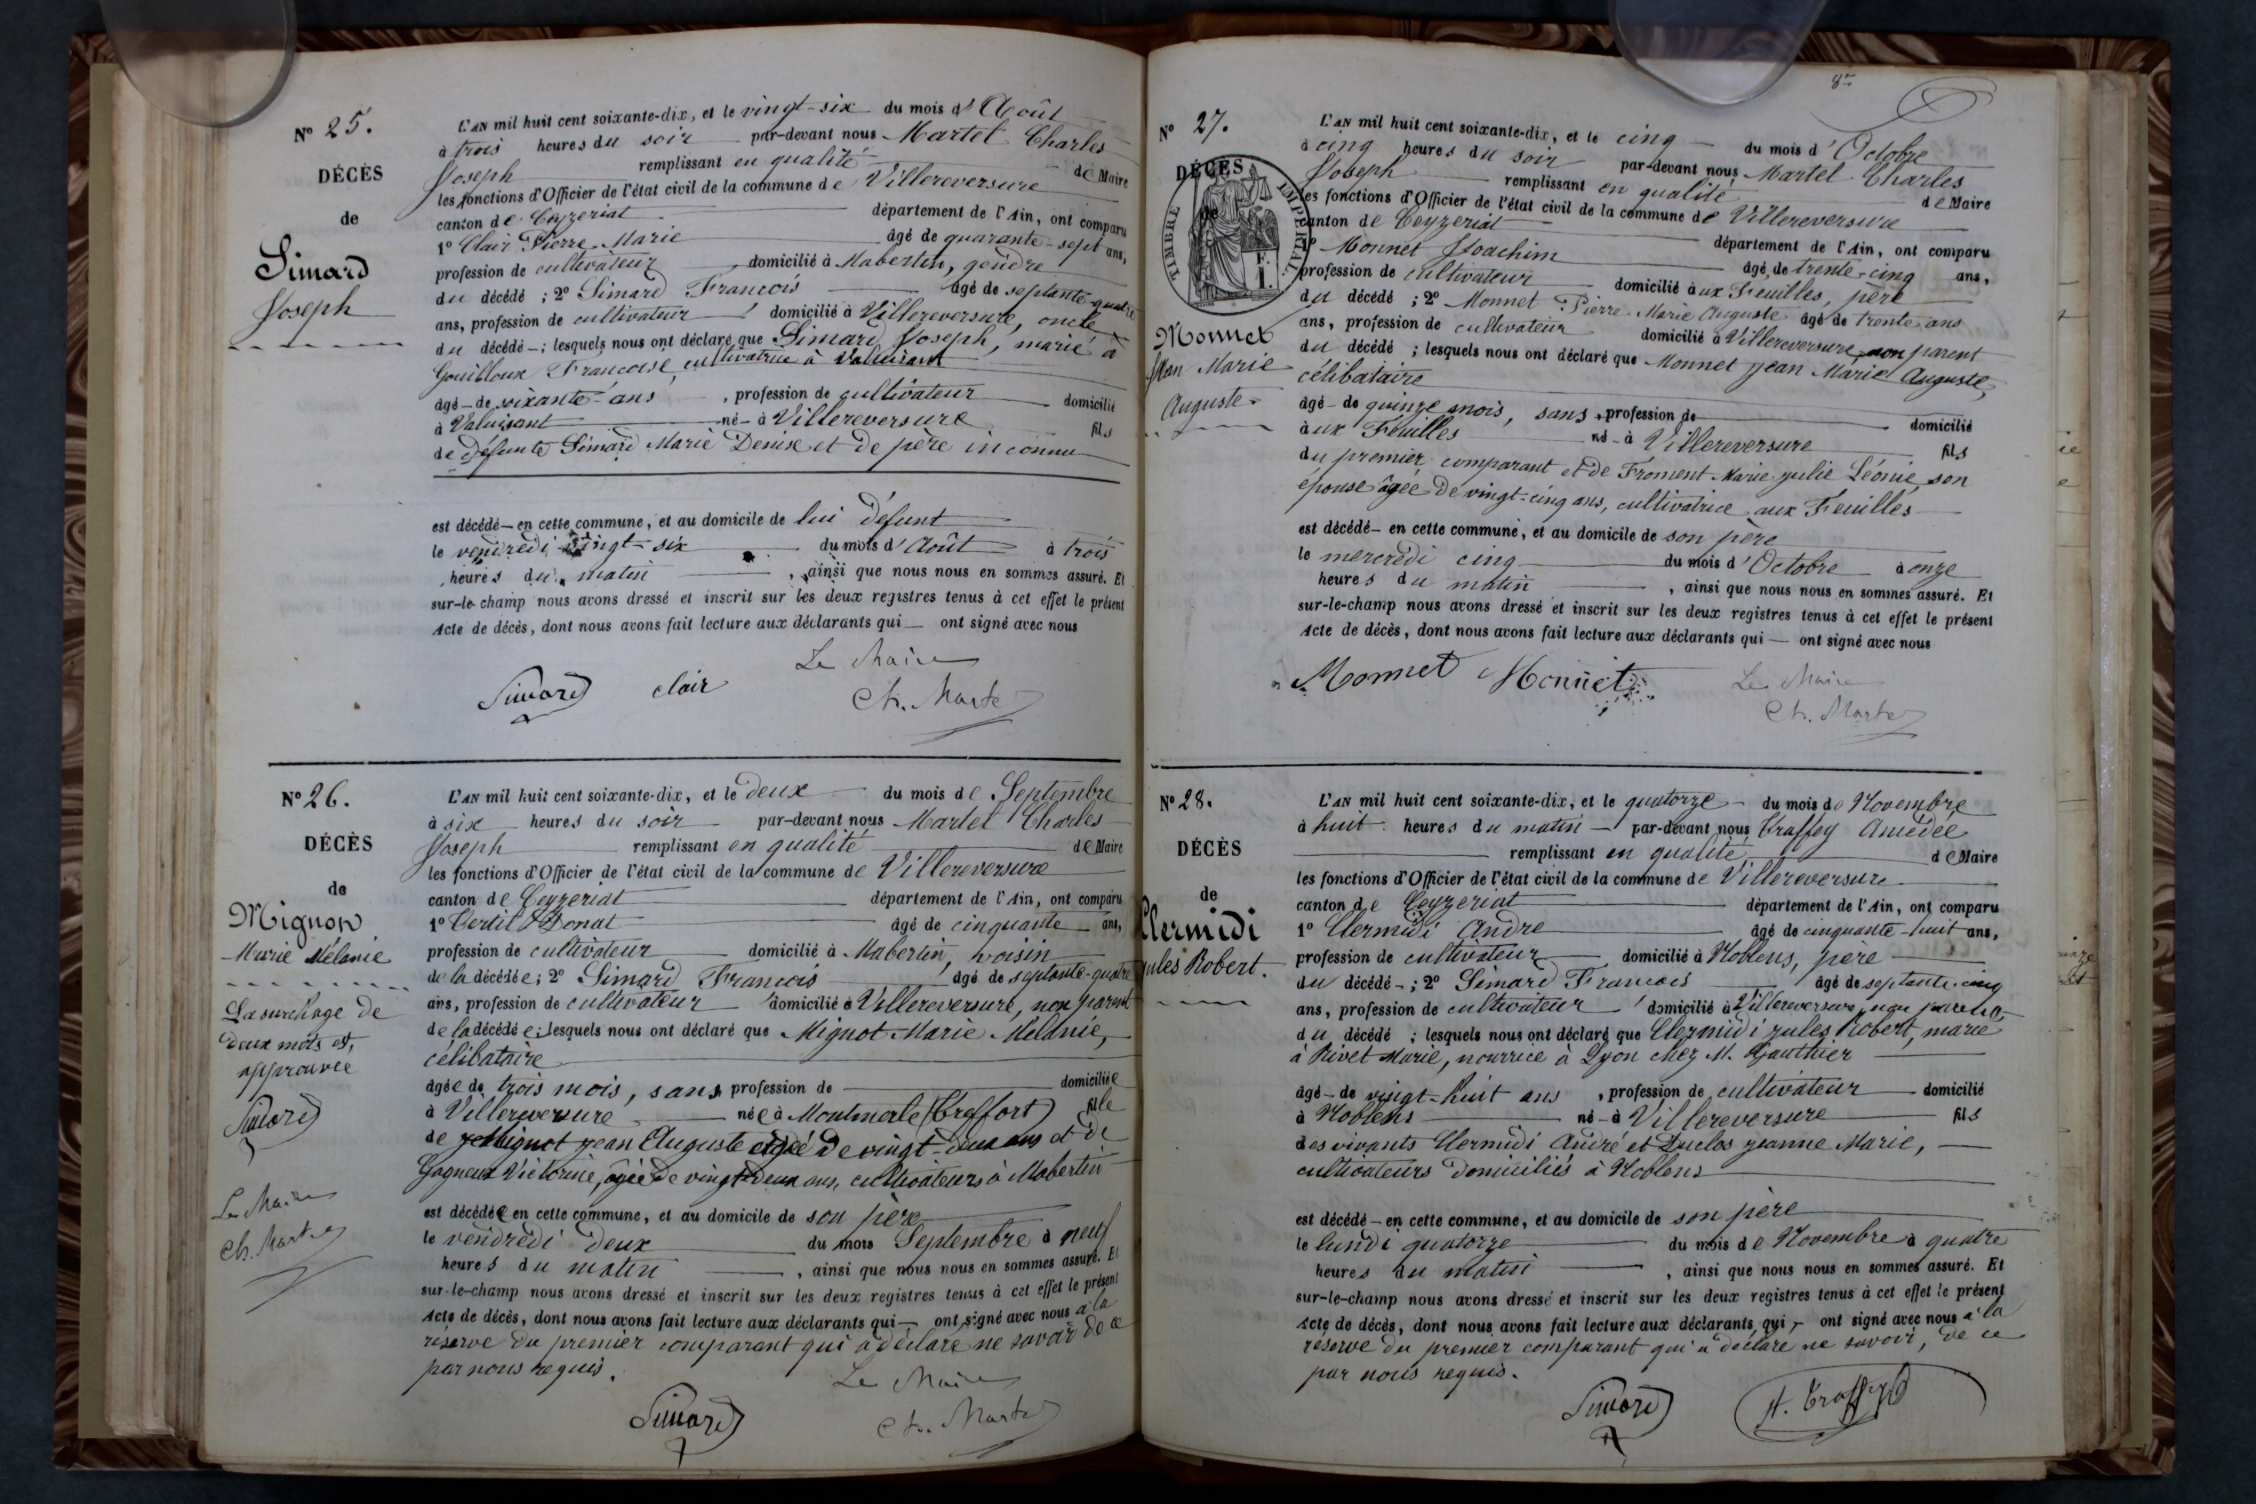 N° 25.
DÉCÈS
de
Simard
Joseph
L'AN mil huit cent soixante-dix, et le vingt-six du mois d'Août
à trois heures du soir par-devant nous Martel Charles
Joseph remplissant en qualité de Maire
les fonctions d'Officier de l'état civil de la commune de Villereversure
canton de Ceyzeriat département de l'Ain, ont comparu
1° Clair Pierre Marie âgé de quarante-sept ans,
profession de cultivateur domicilié à Mabertin, gendre
du décédé ; 2° Simard François âgé de septante-quatre
ans, profession de cultivateur domicilié à Villereversure, oncle
du décédé ; lesquels nous ont déclaré que Simard Joseph, marié à
Gouilloux Françoise, cultivatrice à Valuisant
âgé de soixante ans, profession de cultivateur domicilié
à Valuisant né à Villereversure fils
de défunte Simard Marie Denise et de père inconnu
est décédé en cette commune, et au domicile de lui défunt
le vendredi vingt-six du mois d'Août à trois
heures du matin, ainsi que nous nous en sommes assuré. Et
sur-le-champ nous avons dressé et inscrit sur les deux registres tenus à cet effet le présent
Acte de décès, dont nous avons fait lecture aux déclarants qui ont signé avec nous
Le Maire
Simard clair Ch. Martel
N° 26.
DÉCÈS
de
Mignon
Marie Mélanie
La surchage de
deux mots est,
approuvée
Simard
Le Maire
Ch. Martel
L'AN mil huit cent soixante-dix, et le deux du mois de Septembre
à six heures du soir par-devant nous Martel Charles
Joseph remplissant en qualité de Maire
les fonctions d'Officier de l'état civil de la commune de Villereversure
canton de Ceyzeriat département de l'Ain, ont comparu
1° Donat âgé de cinquante ans,
profession de cultivateur domicilié à Mabertin, voisin
de la décédée ; 2° Simard François âgé de septante-quatre
ans, profession de cultivateur domicilié à Villereversure, non parent
de la décédée ; lesquels nous ont déclaré que Mignot Marie Mélanie,
célibataire
âgée de trois mois, sans profession de domiciliée
à Villereversure née à Montmerle (Treffort) fille
de Mignot Jean Auguste âgé de vingt-deux ans et de
Victorine, âgée de vingt-deux ans, cultivateurs à Mabertin
est décédée en cette commune, et au domicile de son père
le vendredi deux du mois Septembre à neuf
heures du matin, ainsi que nous nous en sommes assuré. Et
sur-le-champ nous avons dressé et inscrit sur les deux registres tenus à cet effet le présent
Acte de décès, dont nous avons fait lecture aux déclarants qui ont signé avec nous à la
réserve du premier comparant qui a déclaré ne savoir de ce
par nous requis.
Le Maire
Simard Ch. Martel
N° 27.
DÉCÈS
de
TIMBRE IMPÉRIAL
F.
1.
Monnet
Jean Marie
Auguste
L'AN mil huit cent soixante-dix, et le cinq du mois d'Octobre
à cinq heures du soir par-devant nous Martel Charles
Joseph remplissant en qualité de Maire
les fonctions d'Officier de l'état civil de la commune de Villereversure
canton de Ceyzeriat département de l'Ain, ont comparu
1° Monnet Joachim âgé de trente-cinq ans,
profession de cultivateur domicilié aux Feuilles, père
du décédé ; 2° Monnet Pierre Marie Auguste âgé de trente ans
ans, profession de cultivateur domicilié à Villereversure, non parent
du décédé ; lesquels nous ont déclaré que Monnet Jean Marie Auguste,
célibataire
âgé de quinze mois, sans profession de domicilié
aux Feuilles né à Villereversure fils
du premier comparant et de Froment Marie Julie Léonie, son
épouse âgée de vingt-cinq ans, cultivatrice aux Feuilles
est décédé en cette commune, et au domicile de son père
le mercredi cinq du mois d'Octobre à onze
heures du matin, ainsi que nous nous en sommes assuré. Et
sur-le-champ nous avons dressé et inscrit sur les deux registres tenus à cet effet le présent
Acte de décès, dont nous avons fait lecture aux déclarants qui ont signé avec nous
Monnet Monnet Le Maire
Ch. Martel
N° 28.
DÉCÈS
de
Clermidi
Jules Robert.
L'AN mil huit cent soixante-dix, et le quatorze du mois de Novembre
à huit heures du matin par-devant nous Traffey Amédée
remplissant en qualité de Maire
les fonctions d'Officier de l'état civil de la commune de Villereversure
canton de Ceyzeriat département de l'Ain, ont comparu
1° Clermidi André âgé de cinquante-huit ans,
profession de cultivateur domicilié à Noblens, père
du décédé ; 2° Simard François âgé de septante-cinq
ans, profession de cultivateur domicilié à Villereversure, non parent
du décédé ; lesquels nous ont déclaré que Clermidi Jules Robert, marié
à Rivet Marie, nourrice à Lyon chez M. Gauthier
âgé de vingt-huit ans, profession de cultivateur domicilié
à Noblens né à Villereversure fils
des vivants Clermidi André et Duclos Jeanne Marie,
cultivateurs domiciliés à Noblens
est décédé en cette commune, et au domicile de son père
le lundi quatorze du mois de Novembre à quatre
heures du matin, ainsi que nous nous en sommes assuré. Et
sur-le-champ nous avons dressé et inscrit sur les deux registres tenus à cet effet le présent
Acte de décès, dont nous avons fait lecture aux déclarants qui ont signé avec nous à la
réserve du premier comparant qui a déclaré ne savoir, de ce
par nous requis.
Simard A. Traffey